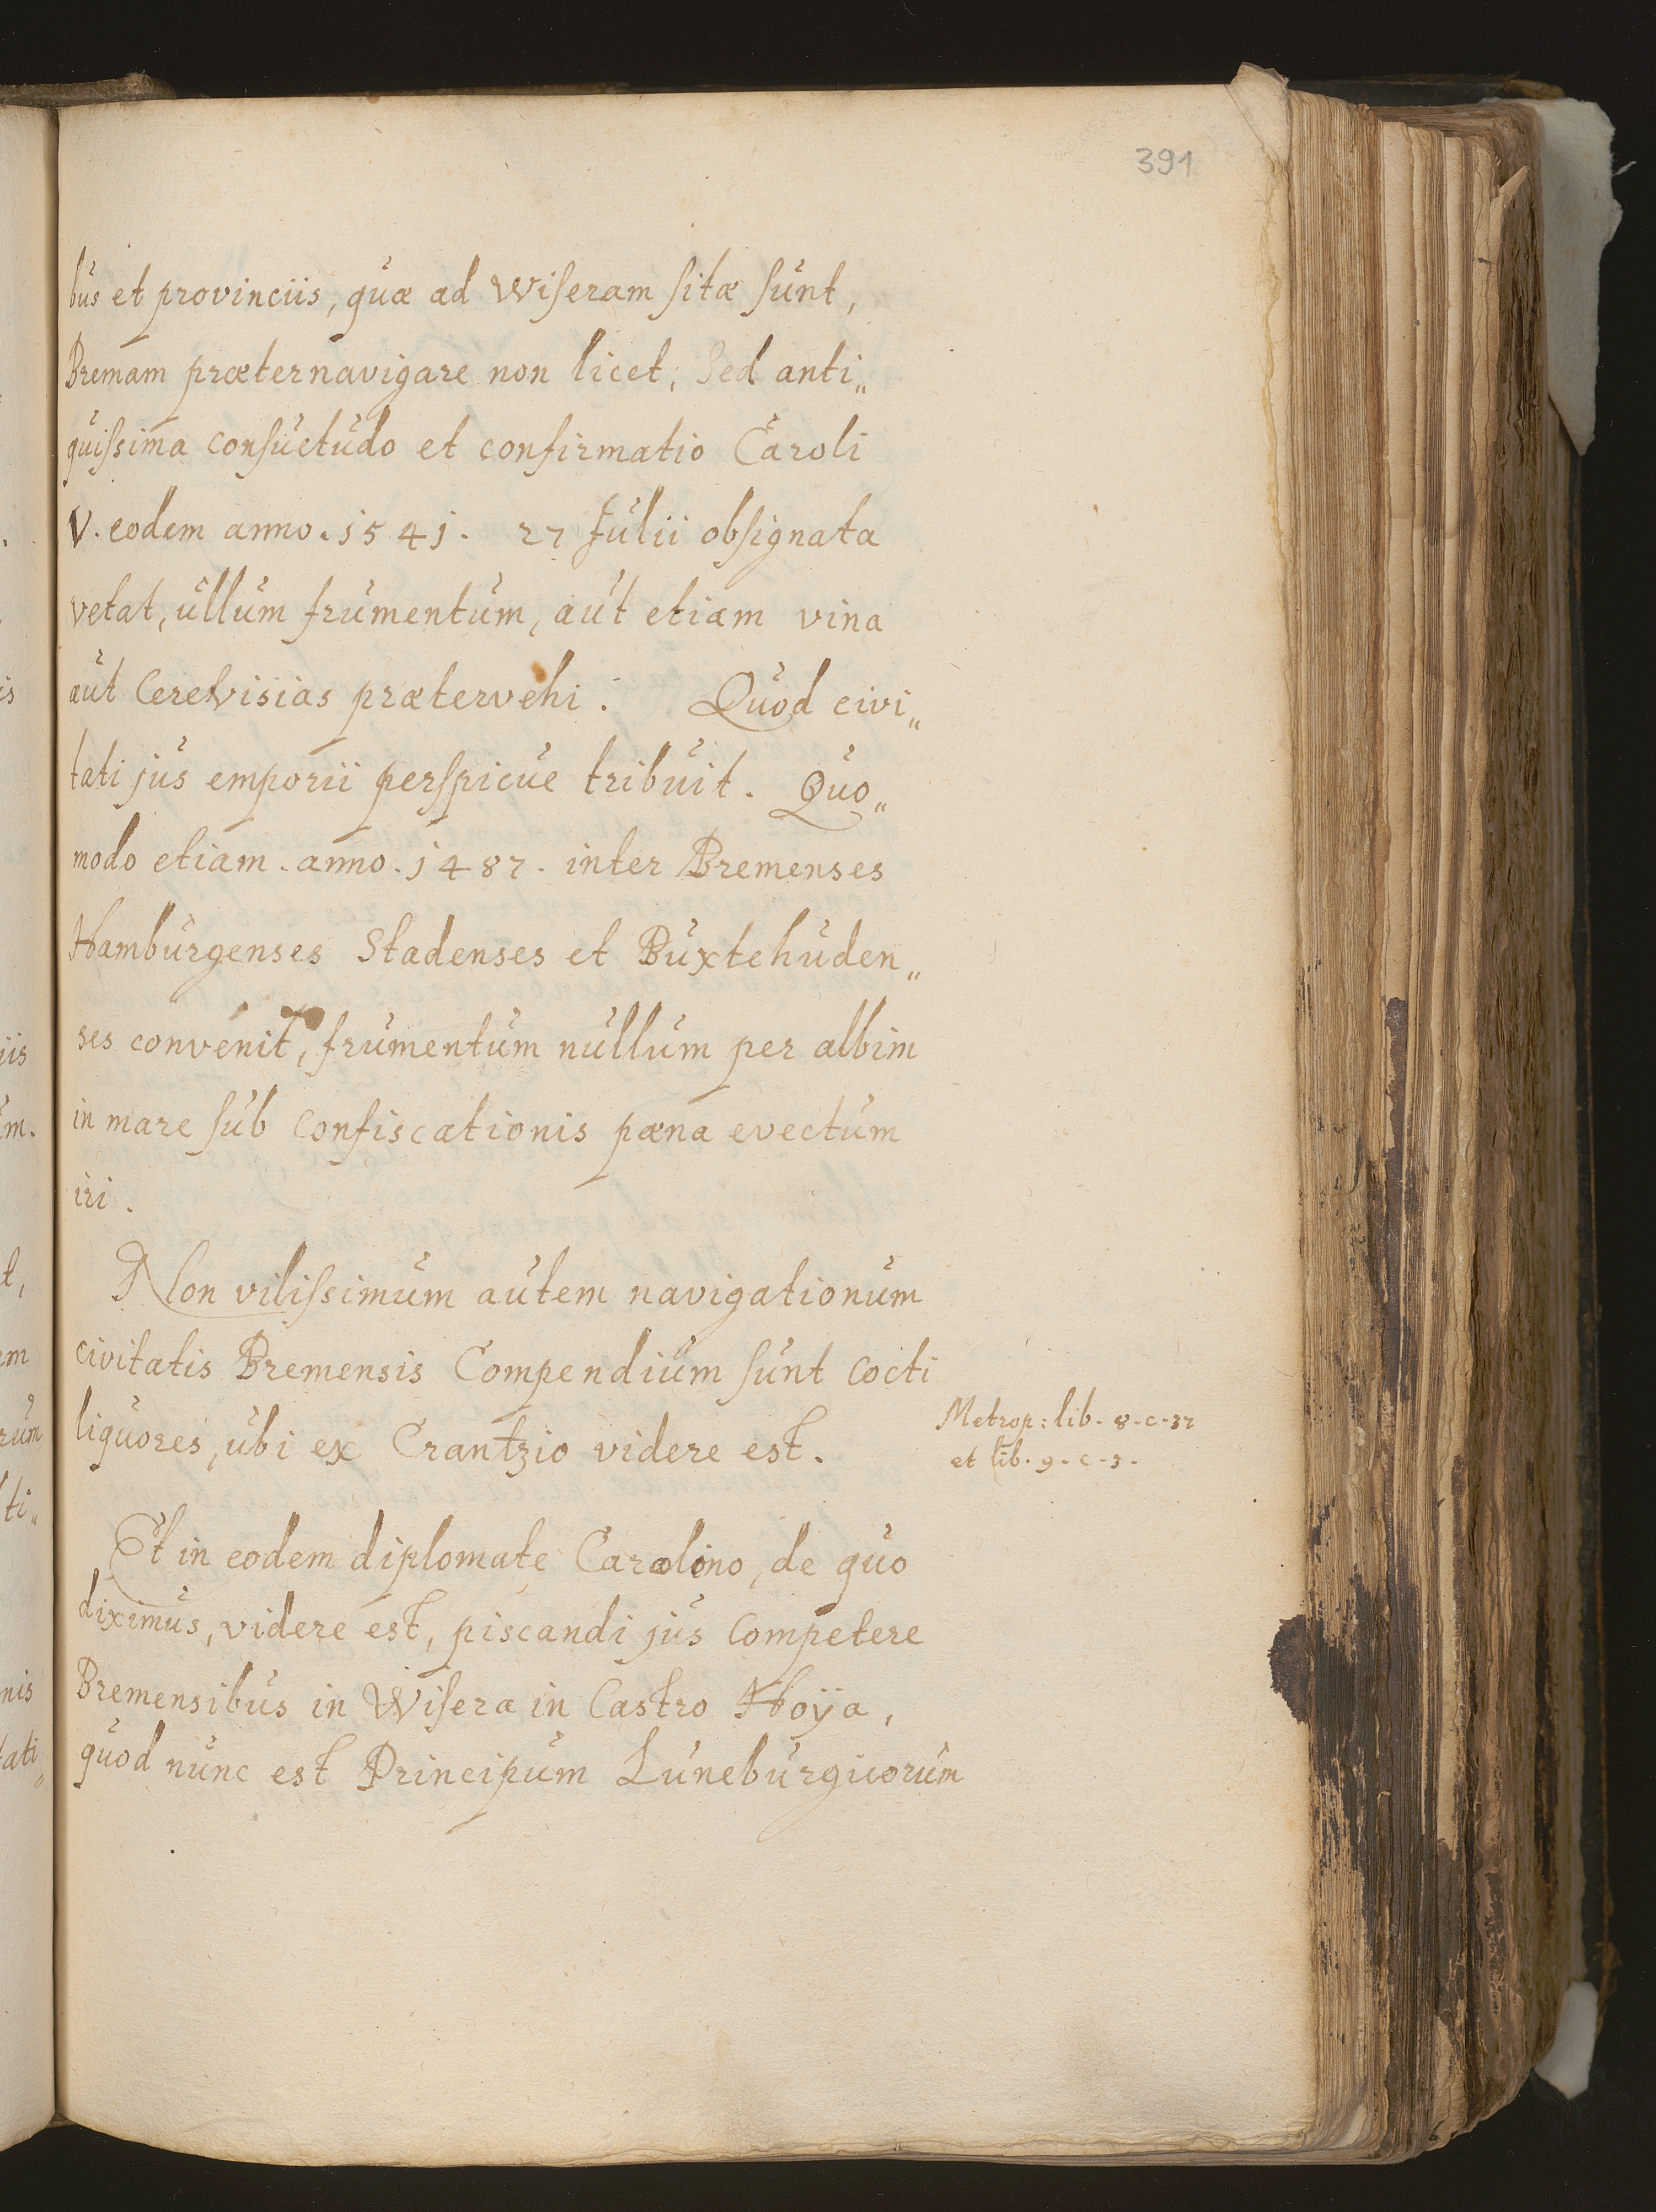 391
bus et provinciis, quæ ad Wiseram sitæ sunt,
Bremam præternavigare non licet, Sed anti„
quissima consuetudo et confirmatio Caroli
V. eodem anno. 1541. 27 Julii obsignata
vetat, ullum frumentum, aut etiam vina
aut Cerevisias prætervehi. Quod civi„
tati jus emporii perspicue tribuit. Quo„
modo etiam. anno. 1487. inter Bremenses
Hamburgenses Stadenses et Buxtehuden„
ses convenit, frumentum nullum per albim
in mare sub confiscationis pæna evectum
iri.
Non vilissimum autem navigationum
civitatis Bremensis Compendium sunt cocti
liquores, ubi ex Crantzio videre est.
Metrop: lib. 8. c. 32
et lib. 9. c. 3.
Et in eodem diplomate Carolino, de quo
diximus, videre est, piscandi jus competere
Bremensibus in Wisera in Castro Hoÿa,
quod nunc est Principum Luneburgicorum